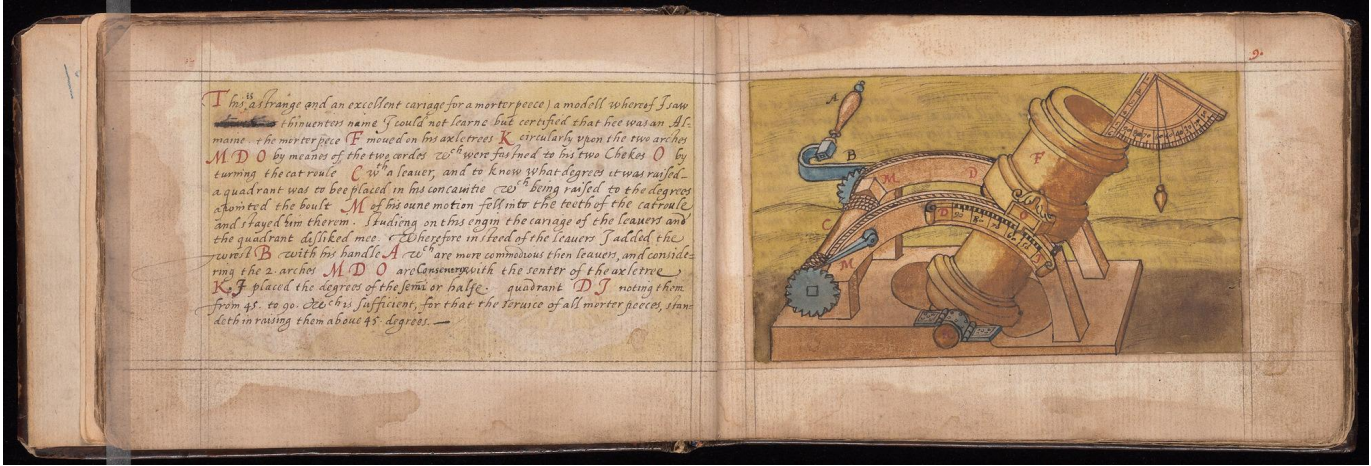 This is a strange and an excellent cariage for a morter peece) a modell whereof I saw
thinventers name I could not learne but certified that hee was an Al=
maine. the morter pece F moved on his axletrees K circularly upon the two arches
M D O by meanes of the two cordes wch were fastned to his two Chekes O by
turning the catroule C wth a leaver, and to know what degrees it was raised
a quadrant was to bee placed in his concavitie wch being raised to the degrees
apointed the boult M of his oune motion fell into the teeth of the catroule
and stayed him therein. Studiing on this engin the cariage of the leavers and
the quadrant disliked mee. Wherefore in steed of the leavers I added the
wrest B with his handle A wch are more commodious then leavers, and conside=
ring the 2. arches M D O are with the senter of the axletree
K. I placed the degrees of the semi or halfe. quadrant D I noting them
from 45. to 90. wch is sufficient, for that the service of all morter peeces, stan=
deth in raising them above 45. degrees.
9.
A
B
F
M
D
C
D
O
M